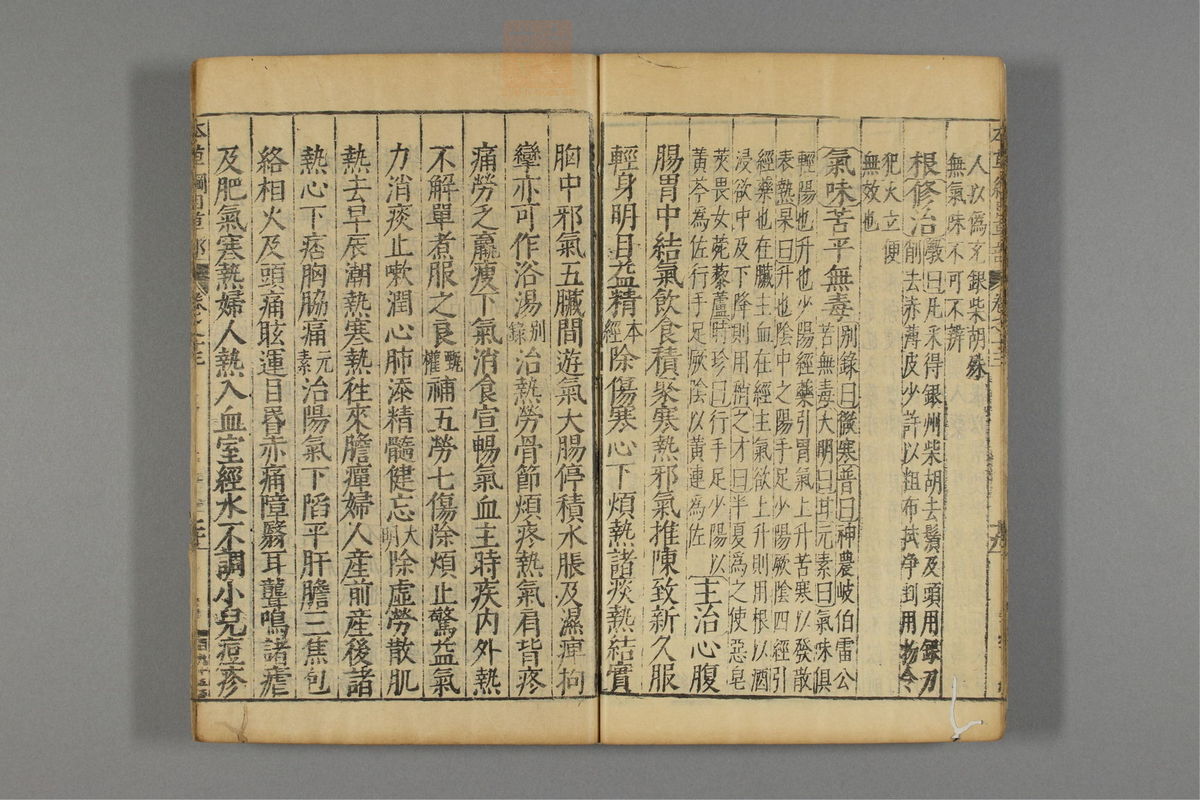 人以爲充銀柴胡
無氣味不可不辨
根修治斅曰凡采得銀州柴胡去鬚及頭用銀刀
削去赤薄皮少許以粗布拭净剉用勿令
犯火立便
無效也
氣味苦平無毒別錄曰微寒普曰神農岐伯雷公
苦無毒大明曰甘元素曰氣味俱
輕陽也升也少陽經藥引胃氣上升苦寒以發散
表熱杲曰升也陰中之陽手足少陽厥陰四經引
經藥也在臟主血在經主氣欲上升則用根以酒
浸欲中及下降則用梢之才曰半夏爲之使惡皂
莢畏女菀藜蘆時珍曰行手足少陽以
黄芩爲佐行手足厥陰以黄連爲佐
主治心腹
腸胃中結氣飲食積聚寒熱邪氣推陳致新久服
輕身明目益精本經除傷寒心下煩熱諸痰熱結實
胸中邪氣五臟間遊氣大腸停積水脹及濕痺拘
攣亦可作浴湯別錄治熱勞骨節煩疼熱氣肩背疼
痛勞乏羸瘦下氣消食宣暢氣血主時疾内外熱
不解單煮服之良甄權補五勞七傷除煩止驚益氣
力消痰止嗽潤心肺添精髓健忘大明除虚勞散肌
熱去早辰潮熱寒熱徃來膽癉婦人産前産後諸
熱心下痞胸脇痛元素治陽氣下陷平肝膽三焦包
絡相火及頭痛眩運目昏赤痛障翳耳聾鳴諸瘧
及肥氣寒熱婦人熱入血室經水不調小兒痘疹
本草綱目草部 卷之十三